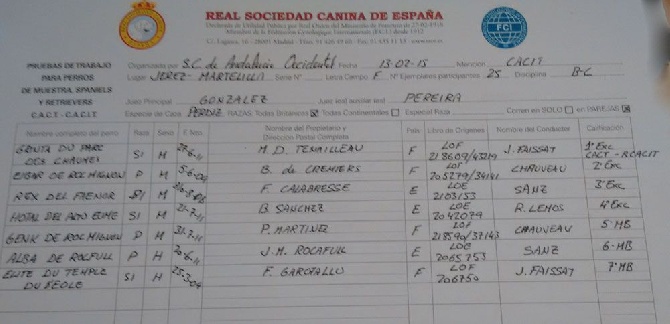 REAL SOCIEDAD CANINA DE ESPAÑA
FCI
PRUEBAS DE TRABAJO
PARA PERROS
DE MUESTRA, SPANIELS
Y RETRIEVERS
C.A.C.T - C.A.C.I.T.
Organizada por S.C. de Andalucia Occidental Fecha 13-02-15 Mención CACIT
Lugar JEREZ-MARTELILLA Serie Nº Letra Campo F Nº Ejemplares participantes 25 Disciplina B-C
Juez Principal GONZALEZ Juez auxiliar PEREIRA
Especie de Caza PERDIZ RAZAS: Todas Británicos Todas Continentales Especial Raza Corren en SOLO en PAREJAS
Nombre completo del perro Raza Sexo F. Nac. Nombre del Propietario y Dirección Postal Completa País Libro de Orígenes Nombre del Conductor Calificación
DES CHAUMES SI M M. D. TENAILLEAU F LOF 218609/43219 J. FAISSAT 1º Exc CACT - RCACIT
EDGAR DE ROC MIGNON P M 5-6-09 B. de CREMIERS F LOF 205279/34141 CHAUVEAU 2º Exc
REX DEL SI M F. CALABRESSE E LOE 2103153 SANZ 3º Exc
SI M 21-7-11 B. SANCHEZ E LOE 2042079 R. LEMOS 4º Exc
GENK DE ROC MIGNON P M 31-7-11 P. MARTINEZ F LOF 218590/37143 CHAUVEAU 5º MB
ALBA DE ROCFULL P H 20-6-11 J.M. ROCAFULL E LOE 2065753 SANZ 6º MB
ELITE DU TEMPLE SI H 25-3-09 F. GAROFALLO F LOF 206750 J. FAISSAT 7º MB